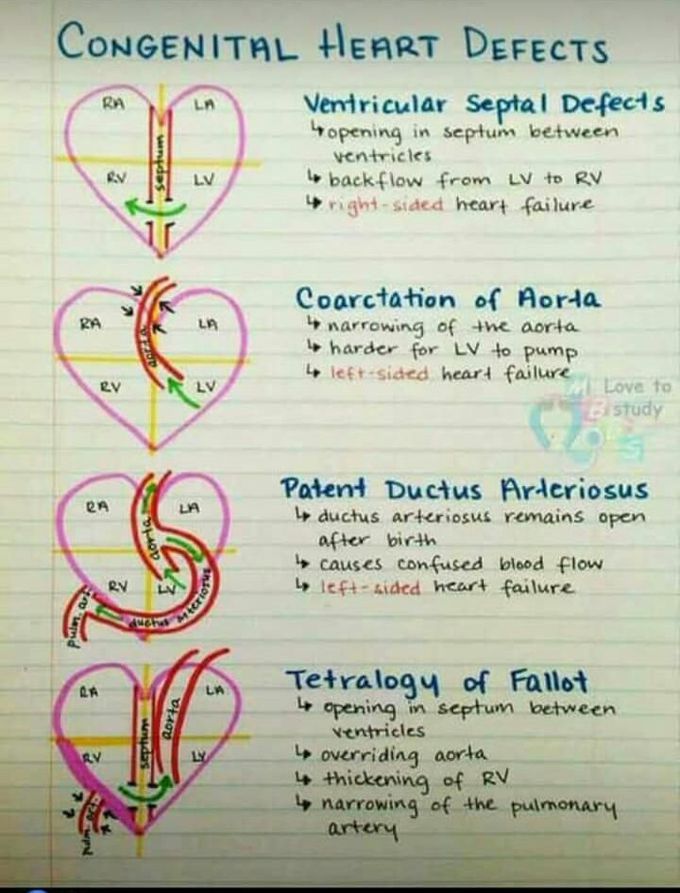 CONGENITAL HEART DEFECTS
RA LA
septum
RV LV
Ventricular Septal Defects
↳ opening in septum between
ventricles
↳ backflow from LV to RV
↳ right-sided heart failure
RA LA
aorta
RV LV
Coarctation of Aorta
↳ narrowing of the aorta
↳ harder for LV to pump
↳ left-sided heart failure
Love to
study
RA LA
aorta
RV LV
pulm. art.
ductus arteriosus
Patent Ductus Arteriosus
↳ ductus arteriosus remains open
after birth
↳ causes confused blood flow
↳ left-sided heart failure
RA LA
septum
aorta
RV LV
pulm. art.
Tetralogy of Fallot
↳ opening in septum between
ventricles
↳ overriding aorta
↳ thickening of RV
↳ narrowing of the pulmonary
artery